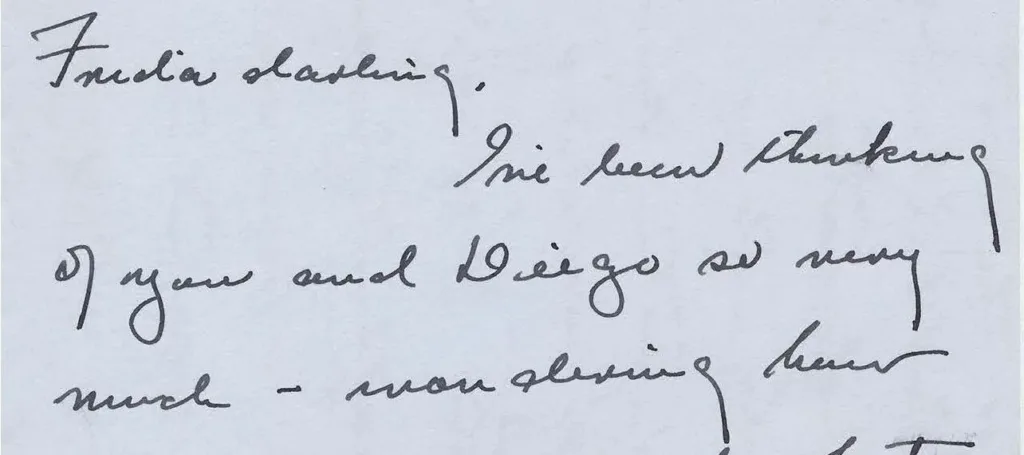 Frieda darling.
I've been thinking
of you and Diego so very
much - wondering how